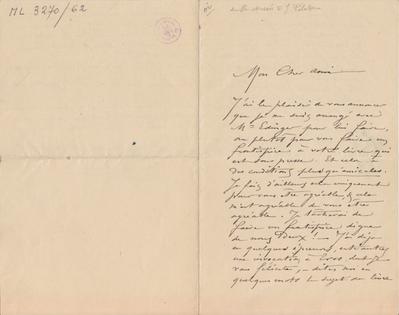 ML 3270/62
Mon Cher ami
J'ai le plaisir de vous annoncer
que je me suis arrangé avec
Mr Edinger pour lui faire,
ou plutôt pour vous faire un
frontispice à votre livre qui
est sous presse. Et cela à
des conditions plus qu'amicales.
Je fais d'ailleurs cela uniquement
pour vous être agréable, & cela
m'est agréable de vous être
agréable. Je tâcherai de
faire un frontispice digne
de nous Deux! — J'ai déjà
eu quelques épreuves,
une invocation à Eros dont je
vous félicite, — dites moi en
quelques mots le sujet du livre